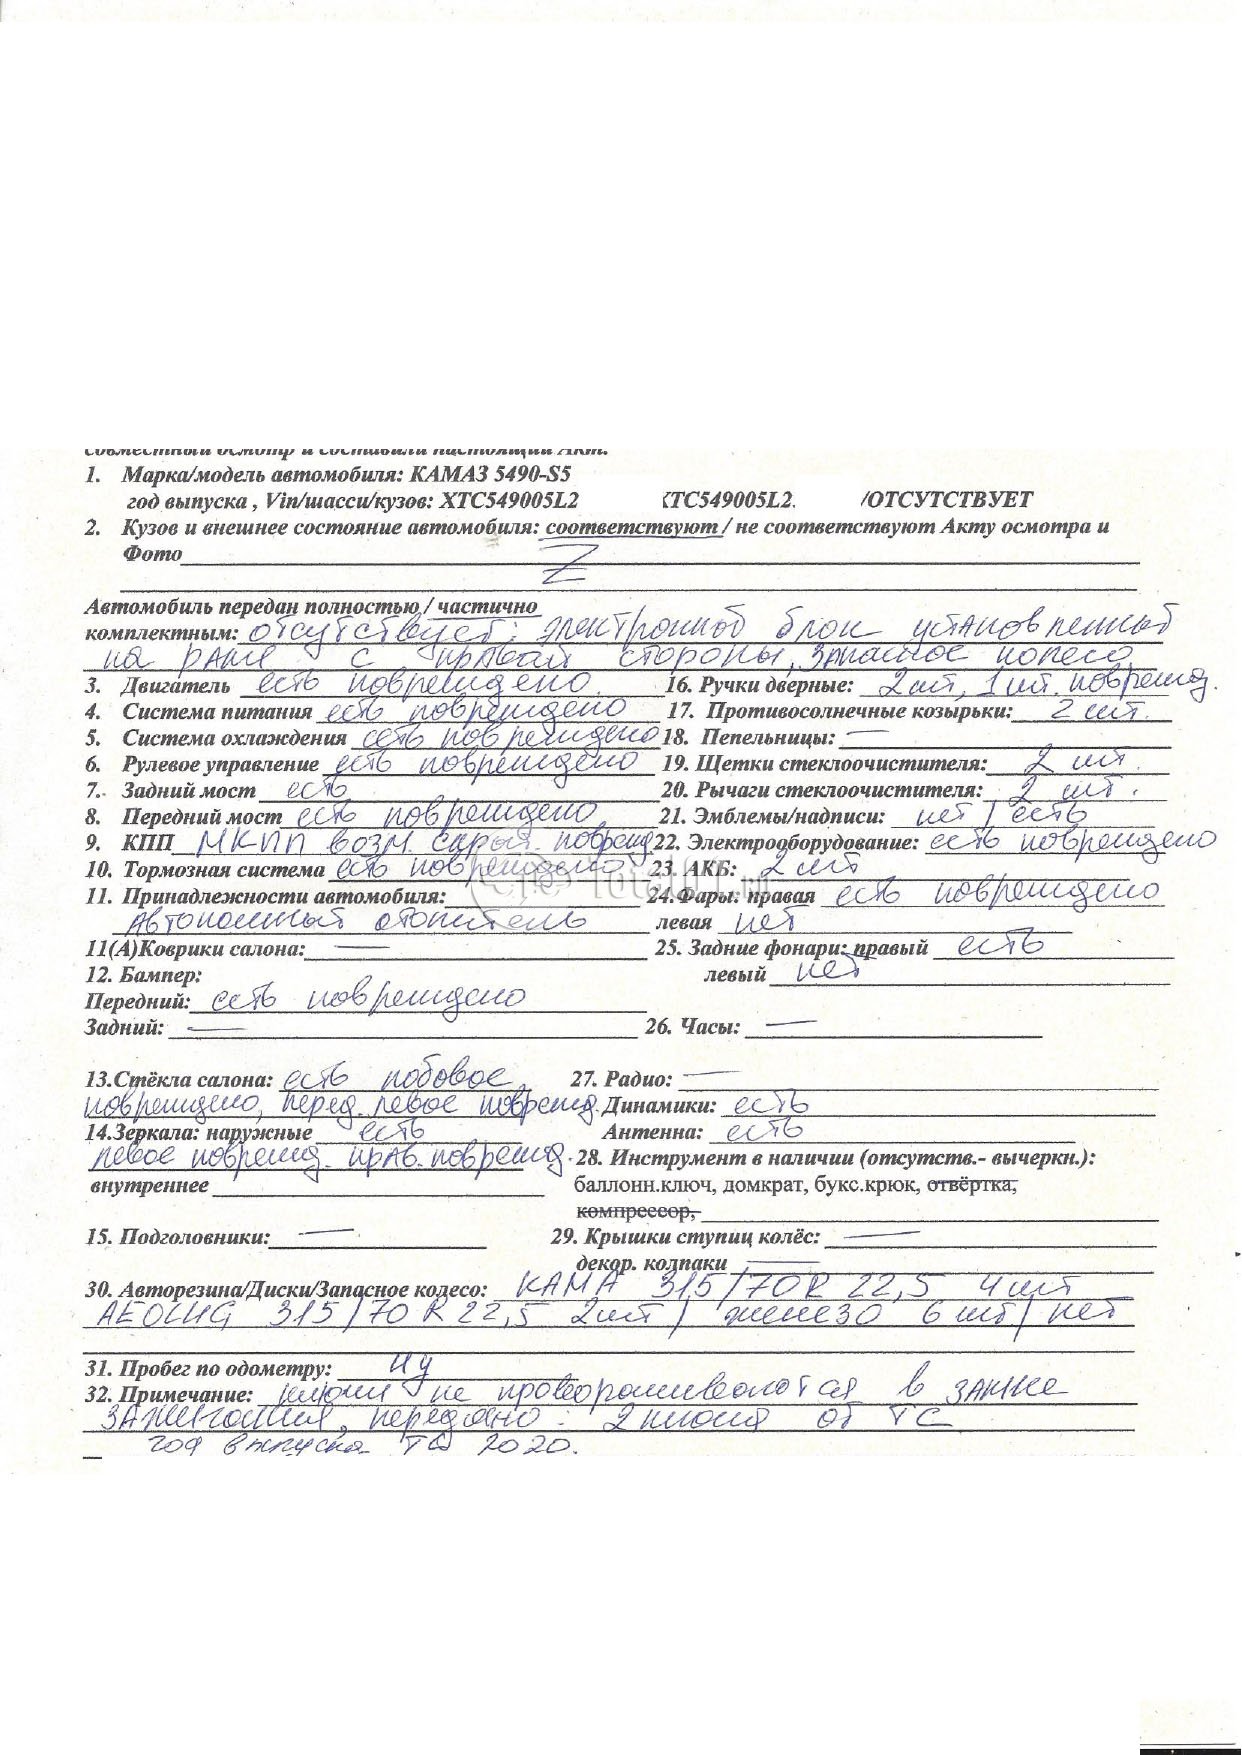 совместный осмотр и составили настоящий Акт.
1. Марка/модель автомобиля: КАМАЗ 5490-S5
год выпуска , Vin/шасси/кузов: XTC549005L2 XTC549005L2 /ОТСУТСТВУЕТ
2. Кузов и внешнее состояние автомобиля: соответствуют / не соответствуют Акту осмотра и
Фото Z
Автомобиль передан полностью / частично
комплектным: отсутствует: электронной блок установленный
на раме с правой стороны, запасное колесо
3. Двигатель есть повреждено 16. Ручки дверные: 2шт, 1шт. поврежд.
4. Система питания есть повреждено 17. Противосолнечные козырьки: 2 шт.
5. Система охлаждения есть повреждено 18. Пепельницы: —
6. Рулевое управление есть повреждено 19. Щетки стеклоочистителя: 2 шт.
7. Задний мост есть 20. Рычаги стеклоочистителя: 2 шт.
8. Передний мост есть повреждено 21. Эмблемы/надписи: нет / есть
9. КПП МКПП возм. скрыт. поврежд 22. Электрооборудование: есть повреждено
10. Тормозная система есть повреждено 23. АКБ: 2 шт
11. Принадлежности автомобиля: 24.Фары: правая есть повреждено
Автономный отопитель левая нет
11(А)Коврики салона: — 25. Задние фонари: правый есть
12. Бампер: левый нет
Передний: есть повреждено
Задний: — 26. Часы: —
13.Стёкла салона: есть лобовое 27. Радио: —
повреждено, перед. левое поврежд. Динамики: есть
14.Зеркала: наружные есть Антенна: есть
левое поврежд. прав. поврежд. 28. Инструмент в наличии (отсутств.- вычеркн.):
внутреннее баллонн.ключ, домкрат, букс.крюк, отвёртка,
компрессор,
15. Подголовники: — 29. Крышки ступиц колёс: —
декор. колпаки —
30. Авторезина/Диски/Запасное колесо: КАМА 315/70R 22,5 4шт
315/70 R 22,5 2шт / железо 6 шт/ нет
31. Пробег по одометру:
32. Примечание: ключи не проворачиваются в замке
зажигания, передано: 2 ключа от ТС
год выпуска ТС 2020.